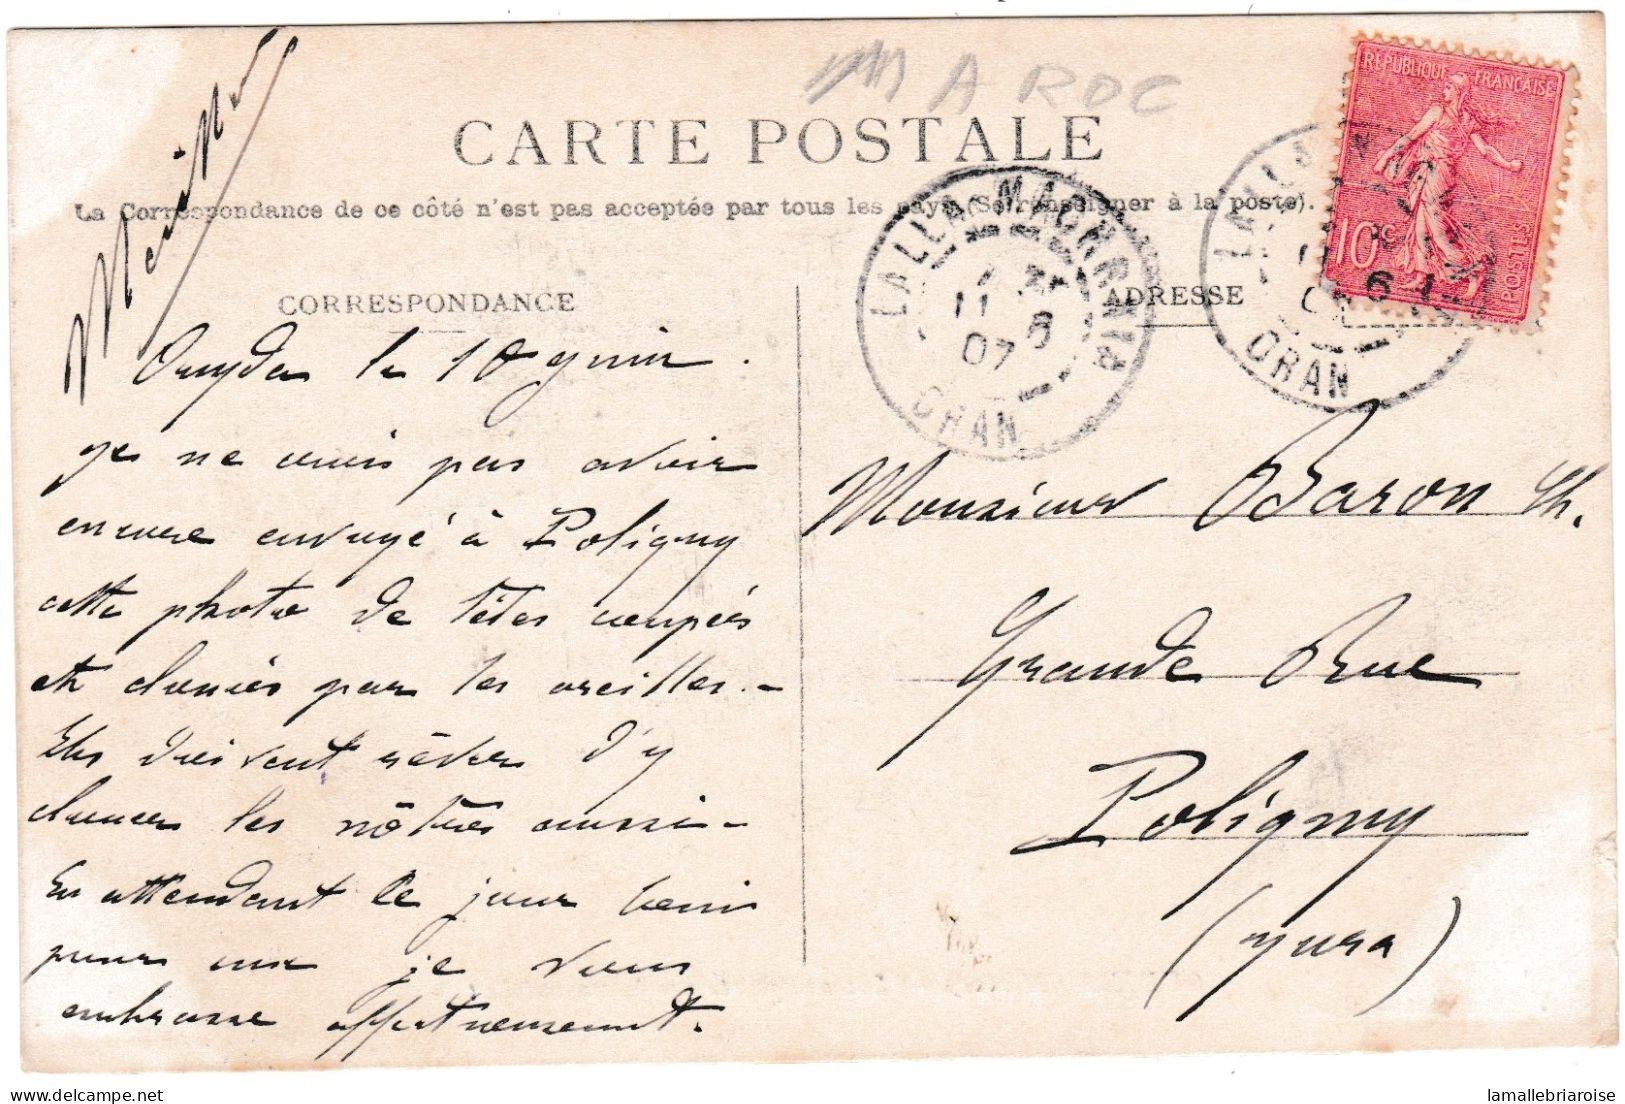 MAROC
CARTE POSTALE
La Correspondance de ce côté n'est pas acceptée par tous les pays (Se renseigner à la poste).
CORRESPONDANCE
Oujda le 10 juin.
Je ne crois pas avoir
encore envoyé à Poligny
cette photo de têtes coupées
et clouées par les oreilles.-
Ils doivent rêver d'y
clouer les nôtres aussi-
En attendant ce jour béni
pour eux je vous
embrasse affectueusement.
LALLA-MAGHRNIA
11 6
07
ORAN
ADRESSE
REPUBLIQUE FRANÇAISE
10c
POSTES
LALLA
ORAN
Monsieur Baron Ch.
Grande Rue
Poligny
(Jura)
delcampe.net
lamallebriaroise